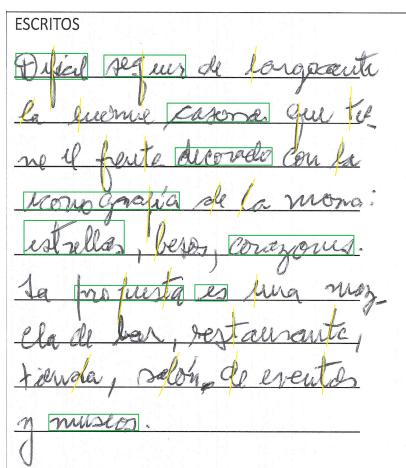 ESCRITOS
Difícil seguir de largo ante
la enorme casona que tie_
ne el frente decorado con la
iconografía de la mona:
estrellas, besos, corazones.
La propuesta es una mez_
cla de bar, restaurante,
tienda, salón de eventos
y museos.